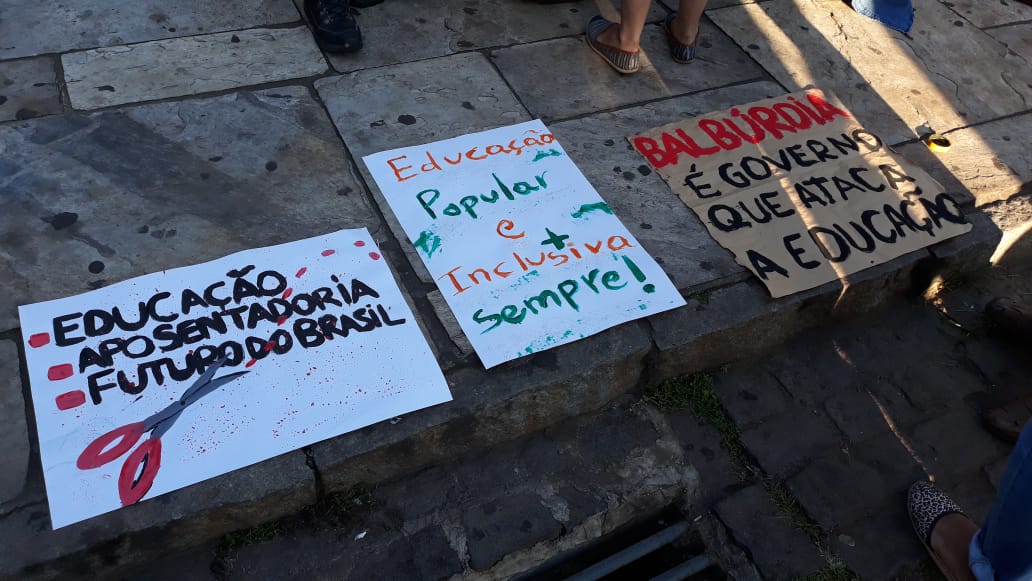 EDUCAÇÃO
APOSENTADORIA
FUTURO DO BRASIL
Educação
Popular
e +
Inclusiva
sempre!
BALBÚRDIA
É GOVERNO
QUE ATACA
A EDUCAÇÃO